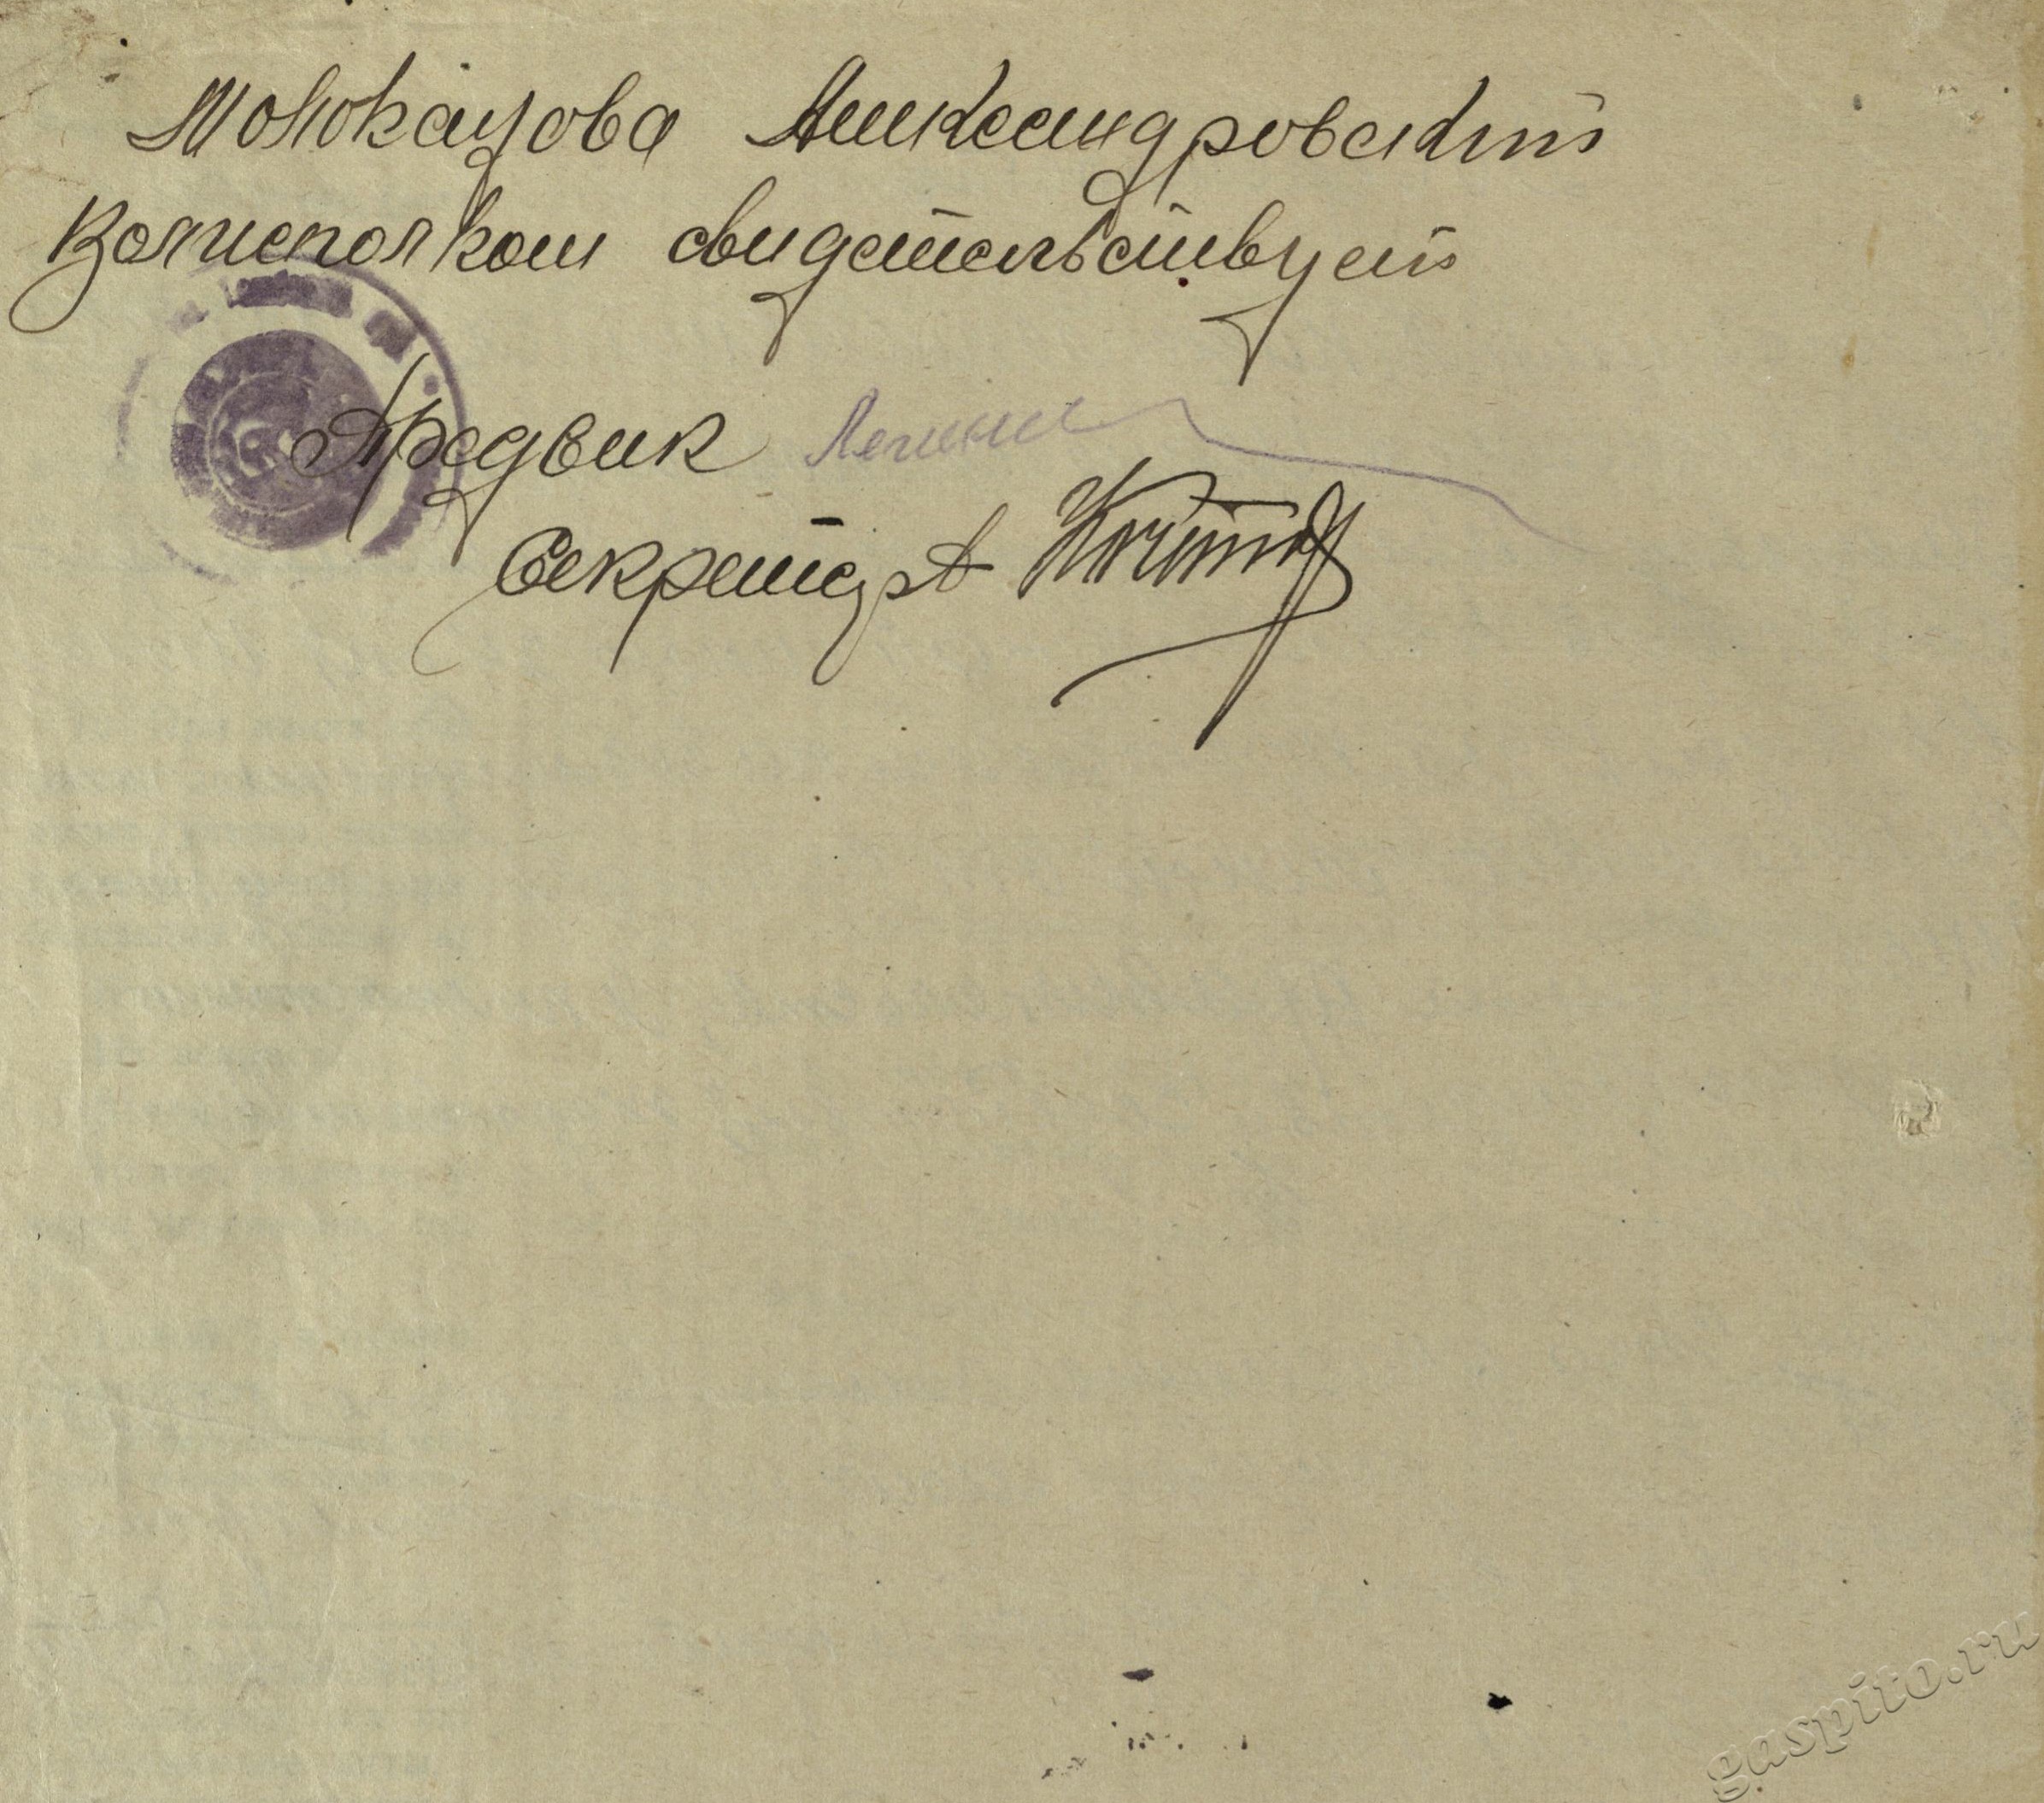 Толокацова Александровский
Волисполком свидетельствует
Предвик
Секретарь
gaspito.ru